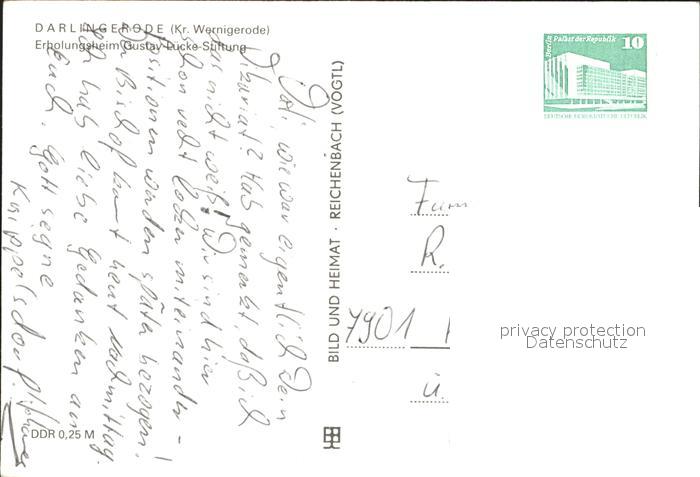 DARLINGERODE (Kr. Wernigerode)
Erholungsheim Gustav-Lücke-Stiftung
Berlin, Palast der Republik
10
DEUTSCHE DEMOKRATISCHE REPUBLIK
wie war eigentlich Dein
? Hab gemerkt, daß ich
das nicht weiß! Wir sind hier
schon recht locker miteinander –
Positionen werden später bezogen!
Der Bischof kommt heut nachmittag.
Ich hab liebe Gedanken an
Euch. Gott segne
BILD UND HEIMAT · REICHENBACH (VOGTL)
Fam
R.
7901
ü.
privacy protection
Datenschutz
DDR 0,25 M